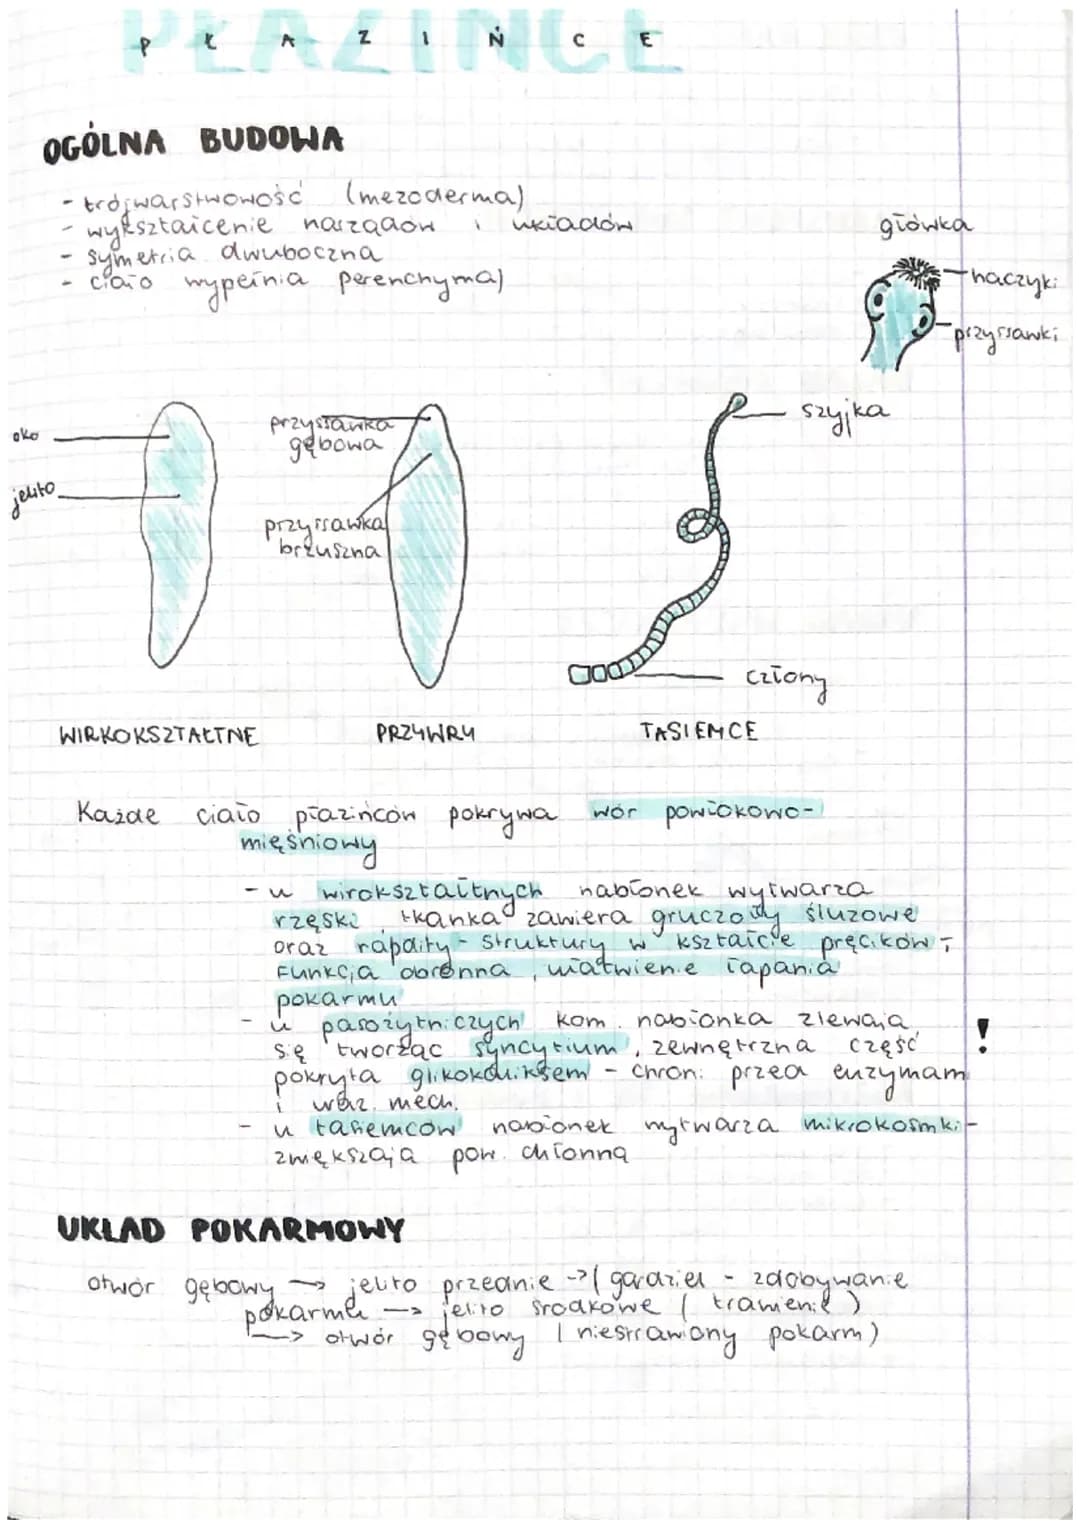 PŁAZIŃCE
P Ł A Z I Ń C E
OGÓLNA BUDOWA
- trójwarstwowość (mezoderma)
- wykształcenie narządów i układów
- symetria dwuboczna
- ciało wypełnia perenchyma)
główka
haczyki
przyssawki
oko
jelito
przyssawka
gębowa
przyssawka
brzuszna
szyjka
człony
WIRKOKSZTAŁTNE
PRZYWRY
TASIEMCE
Każde ciało płazińców pokrywa wór powłokowo-
mięśniowy
- u wirokształtnych nabłonek wytwarza
rzęski, tkanka zawiera gruczoły śluzowe
oraz rapdity - struktury w kształcie pręcików -
funkcja obronna, ułatwienie łapania
pokarmu
- u pasożytniczych kom. nabłonka zlewają
się tworząc syncytium, zewnętrzna część
pokryta glikokaliksem - chroni przed enzymami
i uraz. mech.
!
- u tasiemców nabłonek wytwarza mikrokosmki -
zwiększają pow. chłonną
UKŁAD POKARMOWY
otwór gębowy → jelito przednie → (gardziel - zdobywanie
pokarmu → jelito środkowe (trawienie)
→ otwór gębowy (niestrawiony pokarm)